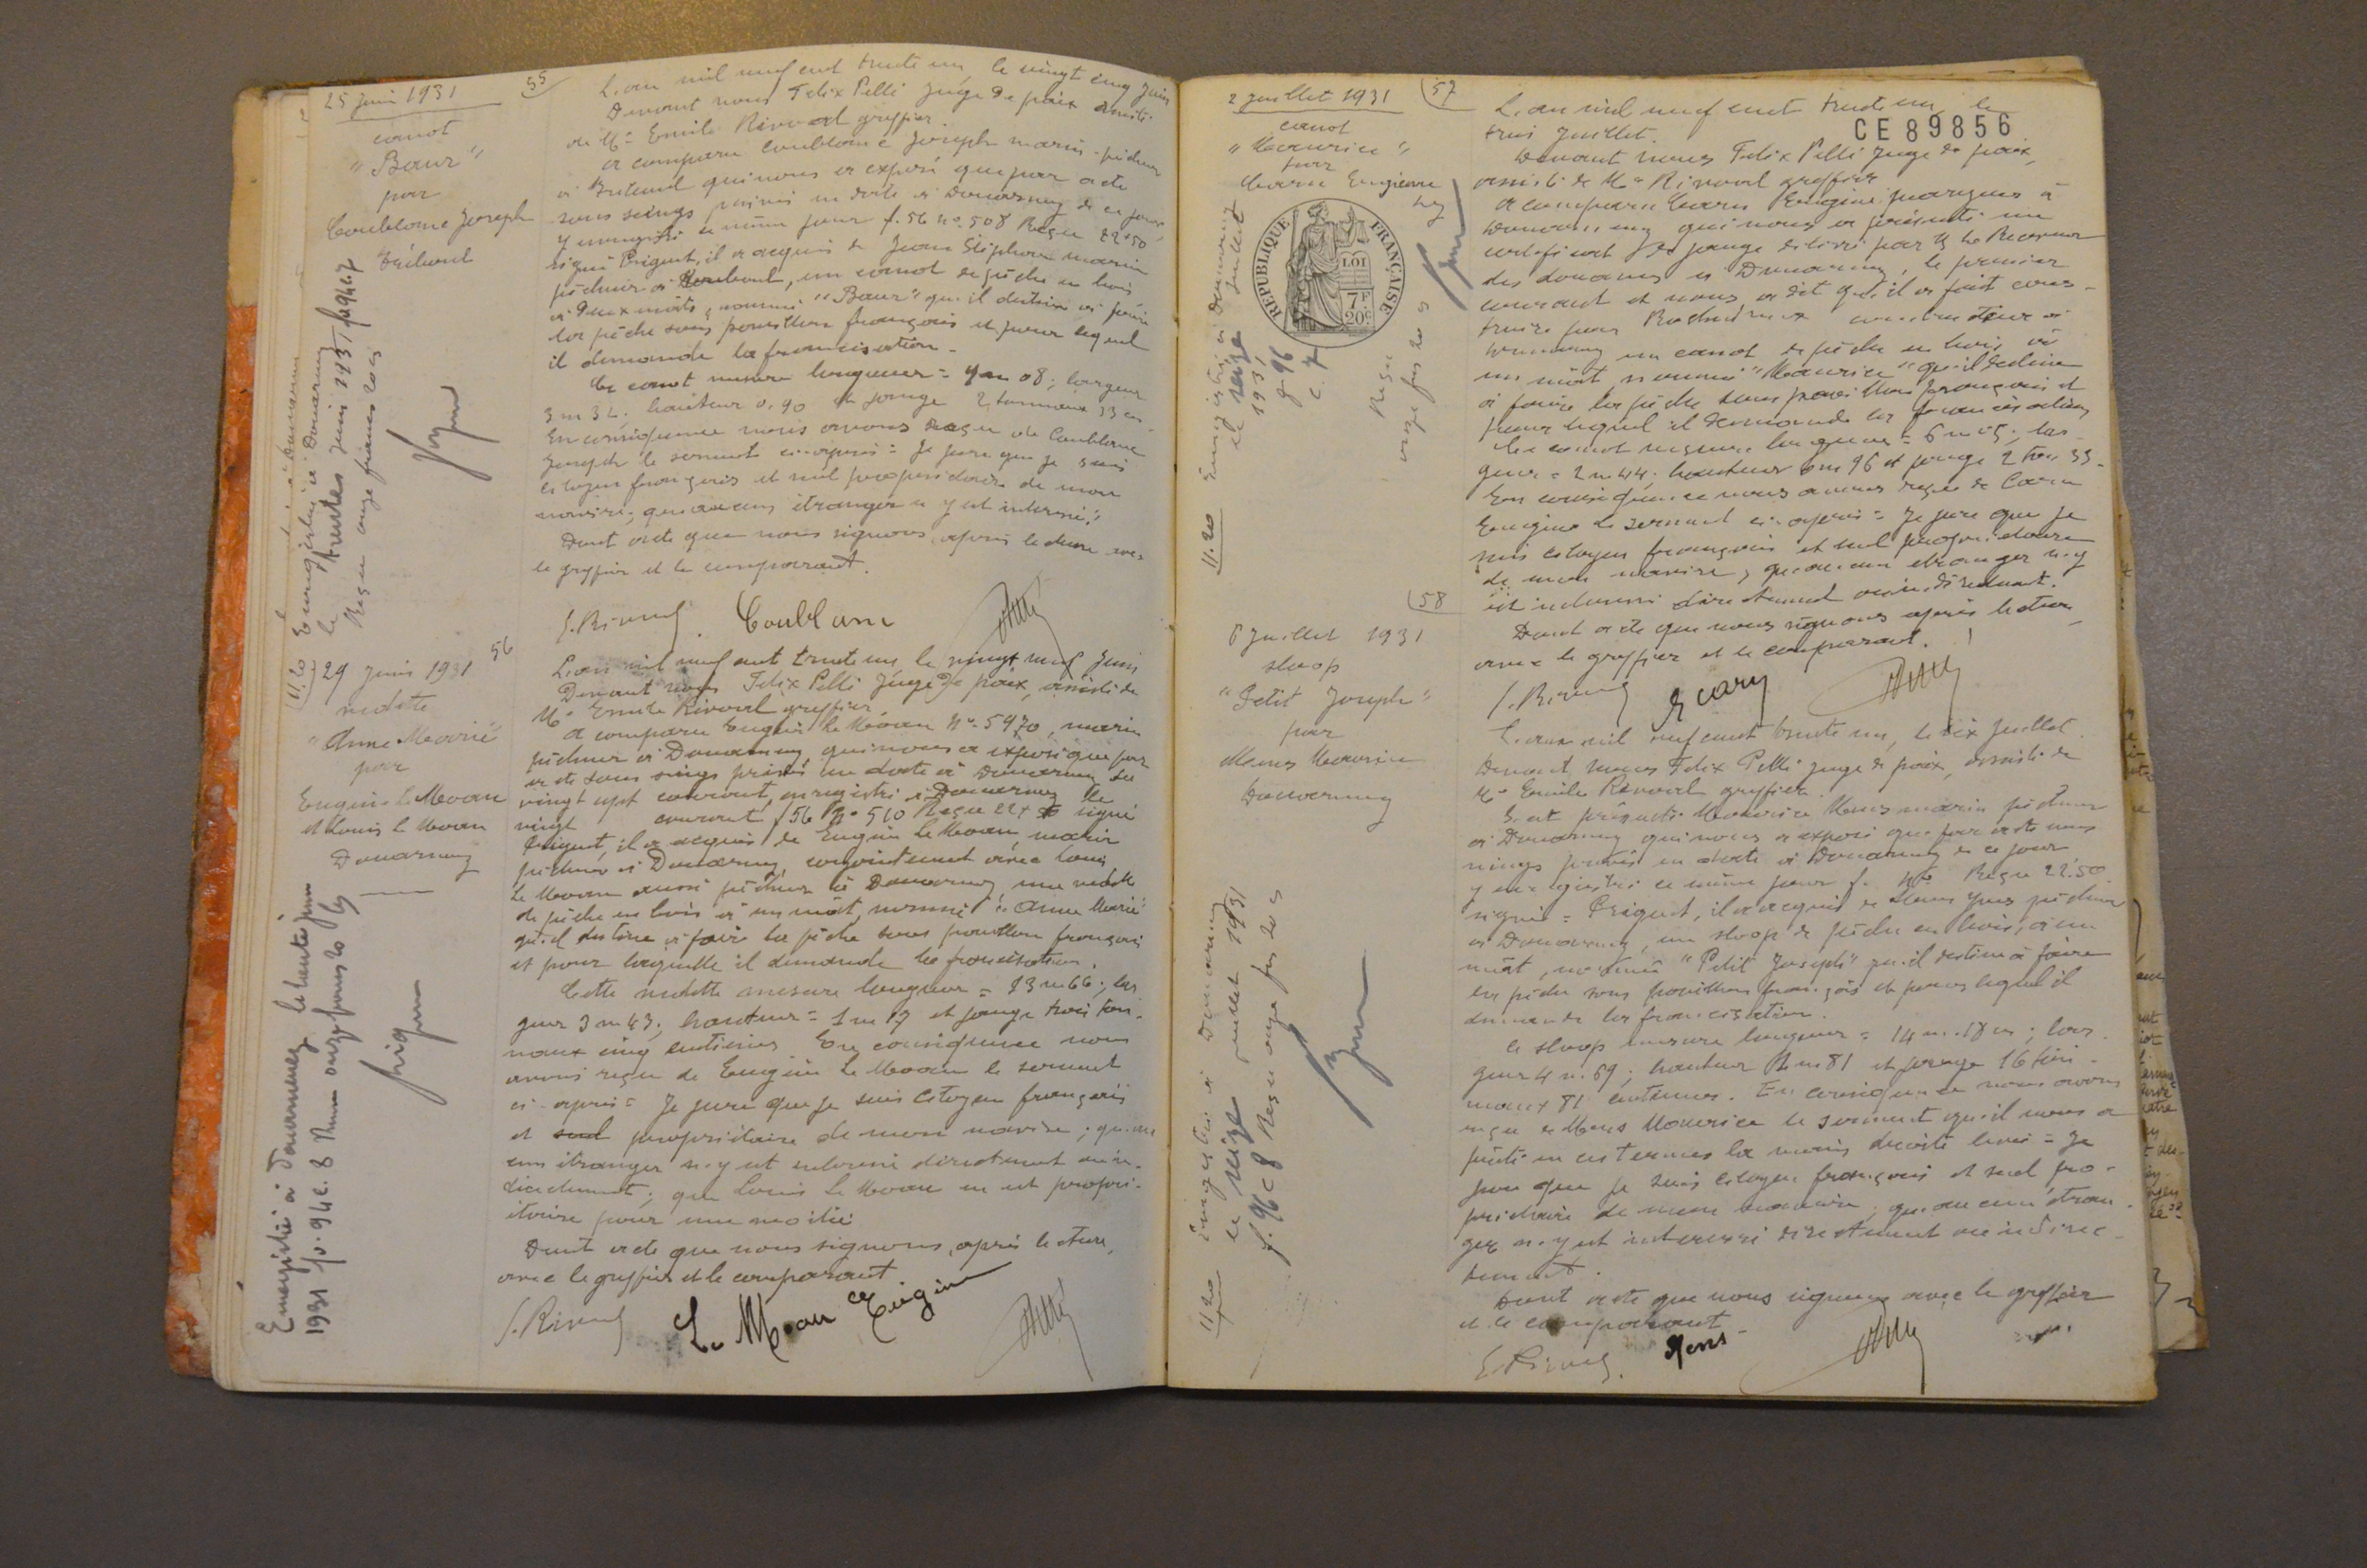 25 juin 1931
canot
"Baur"
par
Coublanc Joseph
Tréboul
55
L'an mil neuf cent trente un le vingt cinq juin
Devant nous Felix Pelli Juge de paix assisté
de Me Emile Rivoal greffier.
a comparu Coublanc Joseph marin-pêcheur
à Tréboul qui nous a exposé que par acte
sous seings privés en date à Douarnenez de ce jour,
y enregistré ce même jour f. 56 no. 508 Reçu 22.50
signé Prigent, il a acquis de Jean Stéphan marin
pêcheur à Tréboul, un canot de pêche en bois
à deux mâts, nommé "Baur" qu'il destine à faire
la pêche sous pavillon français et pour lequel
il demande la francisation.
Ce canot mesure longueur = 08; largeur
3 m 32; hauteur 0.90 et jauge 2 tonneaux 33 c
En conséquence nous avons reçu de Coublanc
Joseph le serment ci-après = Je jure que je suis
citoyen français et seul propriétaire de mon
navire; qu'aucun étranger n'y est interessé.
Dont acte que nous signons, après lecture avec
le greffier et le comparant.
E. Rivoal Coublanc
Enregistré à Douarnenez
le trente juin 1931 f 94 c 7
Reçu onze francs 20 cs
11.20
29 juin 1931
vedette
"Anne Marie"
par
Eugène Le Moan
et Louis Le Moan
Douarnenez
56
L'an mil neuf cent trente un, le vingt neuf juin
Devant nous Felix Pelli Juge de paix, assisté de
Me Emile Rivoal greffier
a comparu Eugène Le Moan No. 5970, marin
pêcheur à Douarnenez qui nous a exposé que par
acte sous seings privés en date à Douarnenez du
vingt sept courant, enregistré à Douarnenez le
vingt courant f 56 No 510 Reçu signé
Prigent, il a acquis de Eugène Le Moan, marin
pêcheur à Douarnenez, conjointement avec Louis
Le Moan aussi pêcheur à Douarnenez, une vedette
de pêche en bois à un mât, nommé "Anne Marie"
qu'il destine à faire la pêche sous pavillon français
et pour laquelle il demande la francisation.
Cette vedette mesure longueur = 13 m 66; lar
geur 3 m 43; hauteur = 1 m 17 et jauge trois ton-
neaux cinq centièmes En conséquence nous
avons reçu de Eugène Le Moan le serment
ci-après = Je jure que je suis citoyen français
et seul propriétaire de mon navire; qu'au
cun étranger n'y est interessé directement ou in-
directement; que Louis Le Moan en est propri-
étaire pour une moitié
Dont acte que nous signons, après lecture,
avec le greffier et le comparant
E. Rivoal Le Moan Eugène
Enregistré à Douarnenez le trente juin
1931 fo. 94 c. 8 Reçu onze francs 20 cs
Prigent
2 juillet 1931
canot
"Maurice"
par
Carn Eugène
57
CE 89856
REPUBLIQUE FRANÇAISE
LOI
7F
20c
L'an mil neuf cent trente un, le
trois juillet.
Devant nous Felix Pelli Juge de paix,
assisté de Me Rivoal greffier
a comparu Carn Eugène mareyeur à
Douarnenez qui nous a présenté un
certificat de jauge délivré par Mr le Receveur
des douanes à Douarnenez, le premier
courant et nous a dit qu'il a fait cons-
truire par constructeur à
Douarnenez un canot de pêche en bois, à
un mât, nommé "Maurice" qu'il destine
à faire la pêche sous pavillon français et
pour lequel il demande la francisation,
Ce canot mesure longueur = 6 m 05; lar-
geur = 2 m 44; hauteur 0 m 96 et jauge 2 tx 33-
En conséquence nous avons reçu de Carn
Eugène le serment ci-après = Je jure que je
suis citoyen français et seul propriétaire
de mon navire, qu'aucun étranger n'y
est interessé directement ou indirectement.
Dont acte que nous signons après lecture,
avec le greffier et le comparant.
E. Rivoal E Carn
Enregistré à Douarnenez
le seize juillet
1931
f 96
c. 7
Reçu
onze frs 20 cs
11.20
58
6 Juillet 1931
sloop
"Petit Joseph"
par
Mens Maurice
Douarnenez
L'an mil neuf cent trente un, le six juillet.
Devant nous Felix Pelli juge de paix, assisté de
Me Emile Rivoal greffier.
S'est présenté Maurice Mens marin pêcheur
à Douarnenez qui nous a exposé que par acte sous
seings privés en date à Douarnenez de ce jour
y enregistré ce même jour f. Reçu 22.50
signé = Prigent, il a acquis de Mens Yves pêcheur
à Douarnenez, un sloop de pêche en bois, à un
mât, nommé "Petit Joseph" qu'il destine à faire
la pêche sous pavillon français et pour lequel il
demande la francisation.
Ce sloop mesure longueur = 14 m. 18 m; lar-
geur 4 m. 69; hauteur 1 m 81 et jauge 16 ton-
neaux 81 centièmes. En conséquence nous avons
reçu de Mens Maurice le serment qu'il nous a
prêté en ces termes la main droite levée = Je
jure que je suis citoyen français et seul pro-
priétaire de mon navire, qu'aucun étran
ger n'y est interessé directement ou indirec-
tement.
Dont acte que nous signons avec le greffier
et le comparant
E. Rivoal. Mens
Enregistré à Douarnenez
le seize juillet 1931
f. 96 c 8 Reçu onze frs 20 cs
11.20